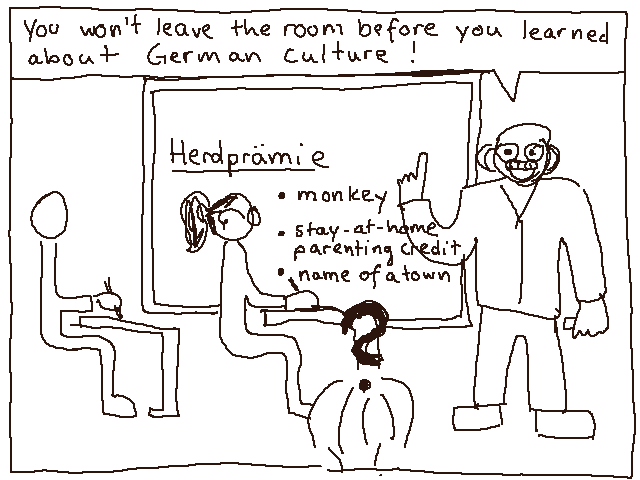 You won't leave the room before you learned
about German culture!
Herdprämie
• monkey
• stay-at-home
parenting credit
• name of a town
?